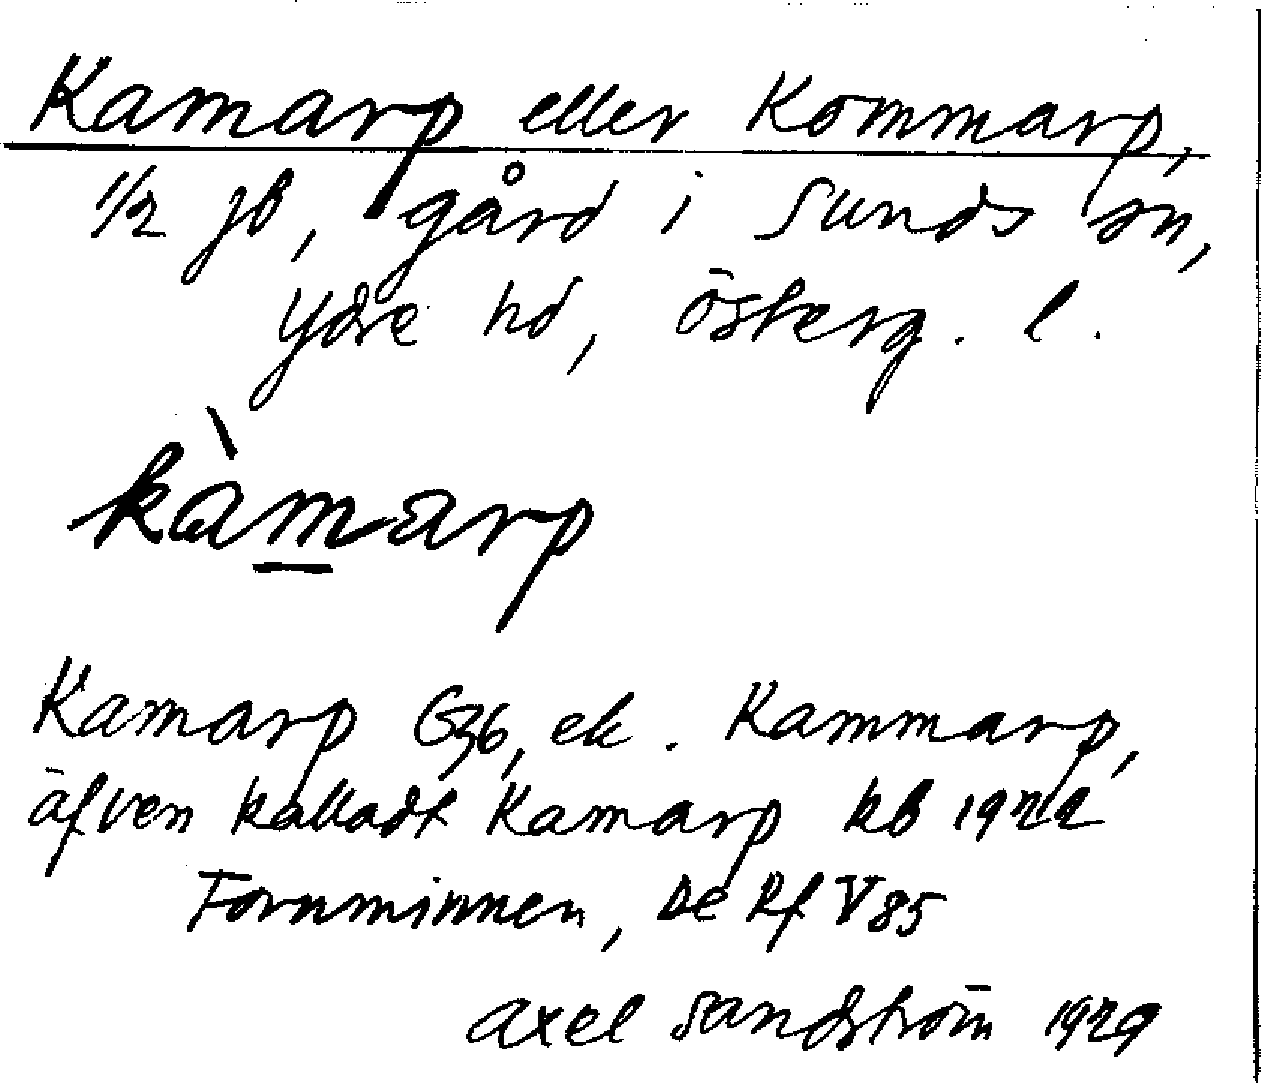 Kamarp eller Kommarp,
1/2 jb, gård i Sunds sn,
Ydre hd, Österg. l.
kàmarp
Kamarp G36, ek. Kammarp,
äfven kalladt Kamarp kb 1922
Fornminnen, se Rf V 85
Axel Sandström 1929